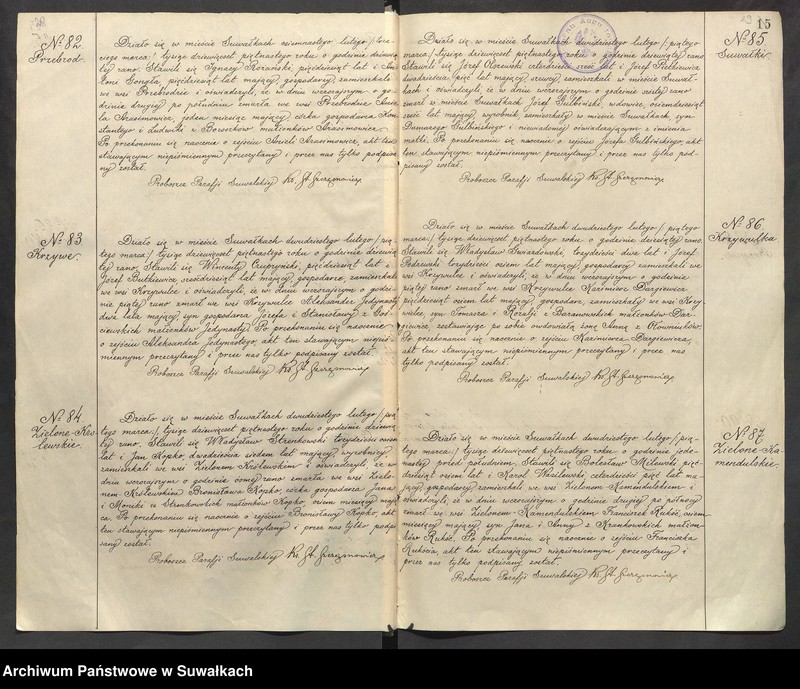 № 82
Przebrod.
Działo się w mieście Suwałkach osiemnastego lutego /trze
ciego marca:/ tysiąc dziewięćset piętnastego roku o godzinie dziewią
tej rano. Stawili się Ignacy Barański, pięćdziesiąt lat i
pięćdziesiąt lat mający, gospodarze, zamieszkali
we wsi Przebrodzie i oświadczyli, że w dniu wczorajszym o go
dzinie drugiej po południu zmarła we wsi Przebrodzie Anie
la Arasimowicz, jeden miesiąc mający, córka gospodarza Kon
stantego i Ludwiki z małżonków Arasimowicz.
Po przekonaniu się naocznie o zejściu Anieli Arasimowicz, akt ten
stawającym niepiśmiennym przeczytany i przez nas tylko podpisa
ny został.
Proboszcz Parafji Suwalskiej Ks. St. Szczęsnowicz
№ 83
Krzywe.
Działo się w mieście Suwałkach dwudziestego lutego /:pią
tego marca:/ tysiąc dziewięćset piętnastego roku o godzinie dziewią
tej rano. Stawili się Wincenty Czupryński, pięćdziesiąt lat i
Józef Butkiewicz, osiemdziesiąt lat mający, gospodarze, zamieszkali
we wsi Krzywulce i oświadczyli, że w dniu wczorajszym o godzi-
nie piątej rano zmarł we wsi Krzywulce Aleksander Jedynasty
dwa lata mający, syn gospodarza Józefa i Stanisławy z
małżonków Jedynasty. Po przekonaniu się naocznie
o zejściu Aleksandra Jedynastego, akt ten stawającym niepiś-
miennym przeczytany i przez nas tylko podpisany został.
Proboszcz Parafji Suwalskiej Ks. St. Szczęsnowicz
№ 84
Zielone-Kró
lewskie.
Działo się w mieście Suwałkach dwudziestego lutego /:pią
tego marca:/ tysiąc dziewięćset piętnastego roku o godzinie dziewią
tej rano. Stawili się Władysław Strenkowski trzydzieści osiem
lat i Jan Kopko, dwadzieścia siedem lat mający, wyrobnicy,
zamieszkali we wsi Zielonem Królewskiem i oświadczyli, że w
dniu wczorajszym o godzinie ósmej rano zmarła we wsi Zielo-
nem-Królewskiem Bronisława Kopko, córka gospodarza Jana
i Moniki z Strenkowskich małżonków Kopko, osiem miesięcy mają
ca. Po przekonaniu się naocznie o zejściu Bronisławy Kopko, akt
ten stawającym niepiśmiennym przeczytany i przez nas tylko podpi
sany został.
Proboszcz Parafji Suwalskiej Ks. St. Szczęsnowicz
15
№ 85
Suwałki
Działo się w mieście Suwałkach dwudziestego lutego /:piątego
marca:/ tysiąc dziewięćset piętnastego roku o godzinie dziewiątej rano
Stawili się Józef Olszewski czterdzieści sześć lat i Józef Pietkiewicz
dwadzieścia pięć lat mający, szewcy, zamieszkali w mieście Suwał-
kach i oświadczyli, że w dniu wczorajszym o godzinie szóstej rano
zmarł w mieście Suwałkach Józef Gulbiński, wdowiec, osiemdziesiąt
sześć lat mający, wyrobnik, zamieszkały w mieście Suwałkach, syn
Damazego Gulbińskiego i niewiadomej oświadczającym z imienia
matki. Po przekonaniu się naocznie o zejściu Józefa Gulbińskiego, akt
ten stawającym niepiśmiennym przeczytany i przez nas tylko pod-
pisany został.
Proboszcz Parafji Suwalskiej Ks. St. Szczęsnowicz
№ 86
Krzywulka
Działo się w mieście Suwałkach dwudziestego lutego /:piątego
marca:/ tysiąc dziewięćset piętnastego roku o godzinie dziesiątej rano
Stawili się Władysław Swarzewski, trzydzieści dwa lat i Józef
trzydzieści osiem lat mający, gospodarze zamieszkali we wsi
Krzywulce i oświadczyli, że w dniu wczorajszym o godzinie
piątej rano zmarł we wsi Krzywulce Kazimierz Dargiewicz
pięćdziesiąt osiem lat mający, gospodarz, zamieszkały we wsi Krzy-
wulce, syn Tomasza i Rozalji z Baranowskich małżonków Dar-
giewicz, zostawiając po sobie owdowiałą żonę Annę z
Po przekonaniu się naocznie o zejściu Kazimierza Dargiewicza,
akt ten stawającym niepiśmiennym przeczytany i przez nas
tylko podpisany został.
Proboszcz Parafji Suwalskiej Ks. St. Szczęsnowicz
№ 87
Zielone-Ka-
medulskie.
Działo się w mieście Suwałkach dwudziestego lutego /:pią-
tego marca:/ tysiąc dziewięćset piętnastego roku o godzinie jede-
nastej przed południem. Stawili się Bolesław Milewski pięć-
dziesiąt osiem lat i Karol Wasilewski czterdzieści pięć lat ma-
jący, gospodarze zamieszkali we wsi Zielonem-Kamedulskiem i
oświadczyli, że w dniu wczorajszym o godzinie drugiej po północy
zmarł we wsi Zielonem-Kamedulskiem Franciszek Rukść, osiem
miesięcy mający, syn Jana i Anny z małżon-
ków Rukść. Po przekonaniu się naocznie o zejściu Franciszka
Rukścia, akt ten stawającym niepiśmiennym przeczytany i
przez nas tylko podpisany został.
Proboszcz Parafji Suwalskiej Ks. St. Szczęsnowicz
Archiwum Państwowe w Suwałkach